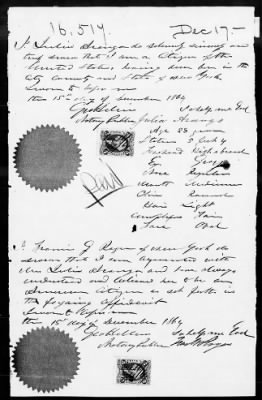 16,519. Dec 17-
I, Julia Arango do solemnly sincerely and
truly swear that I am a Citizen of the
United States having been born in the
City County and State of New York
Sworn to before me
this 15th day of December 1864
So help me God
Notary Public Julia Arango
Age 28 years
Stature 5 feet 4
Forehead High & broad
Eyes Grey
Nose Regular
Mouth Medium
Chin Round
Hair Light
Complexion Fair
Face Oval
I Francis G. of New York do
swear that I am acquainted with
Mrs Julia Arango and have always
understood and believed her to be an
American citizen as set forth in
the foregoing affidavit
Sworn to before me
this 15th day of December 1864
So help me God
Notary Public